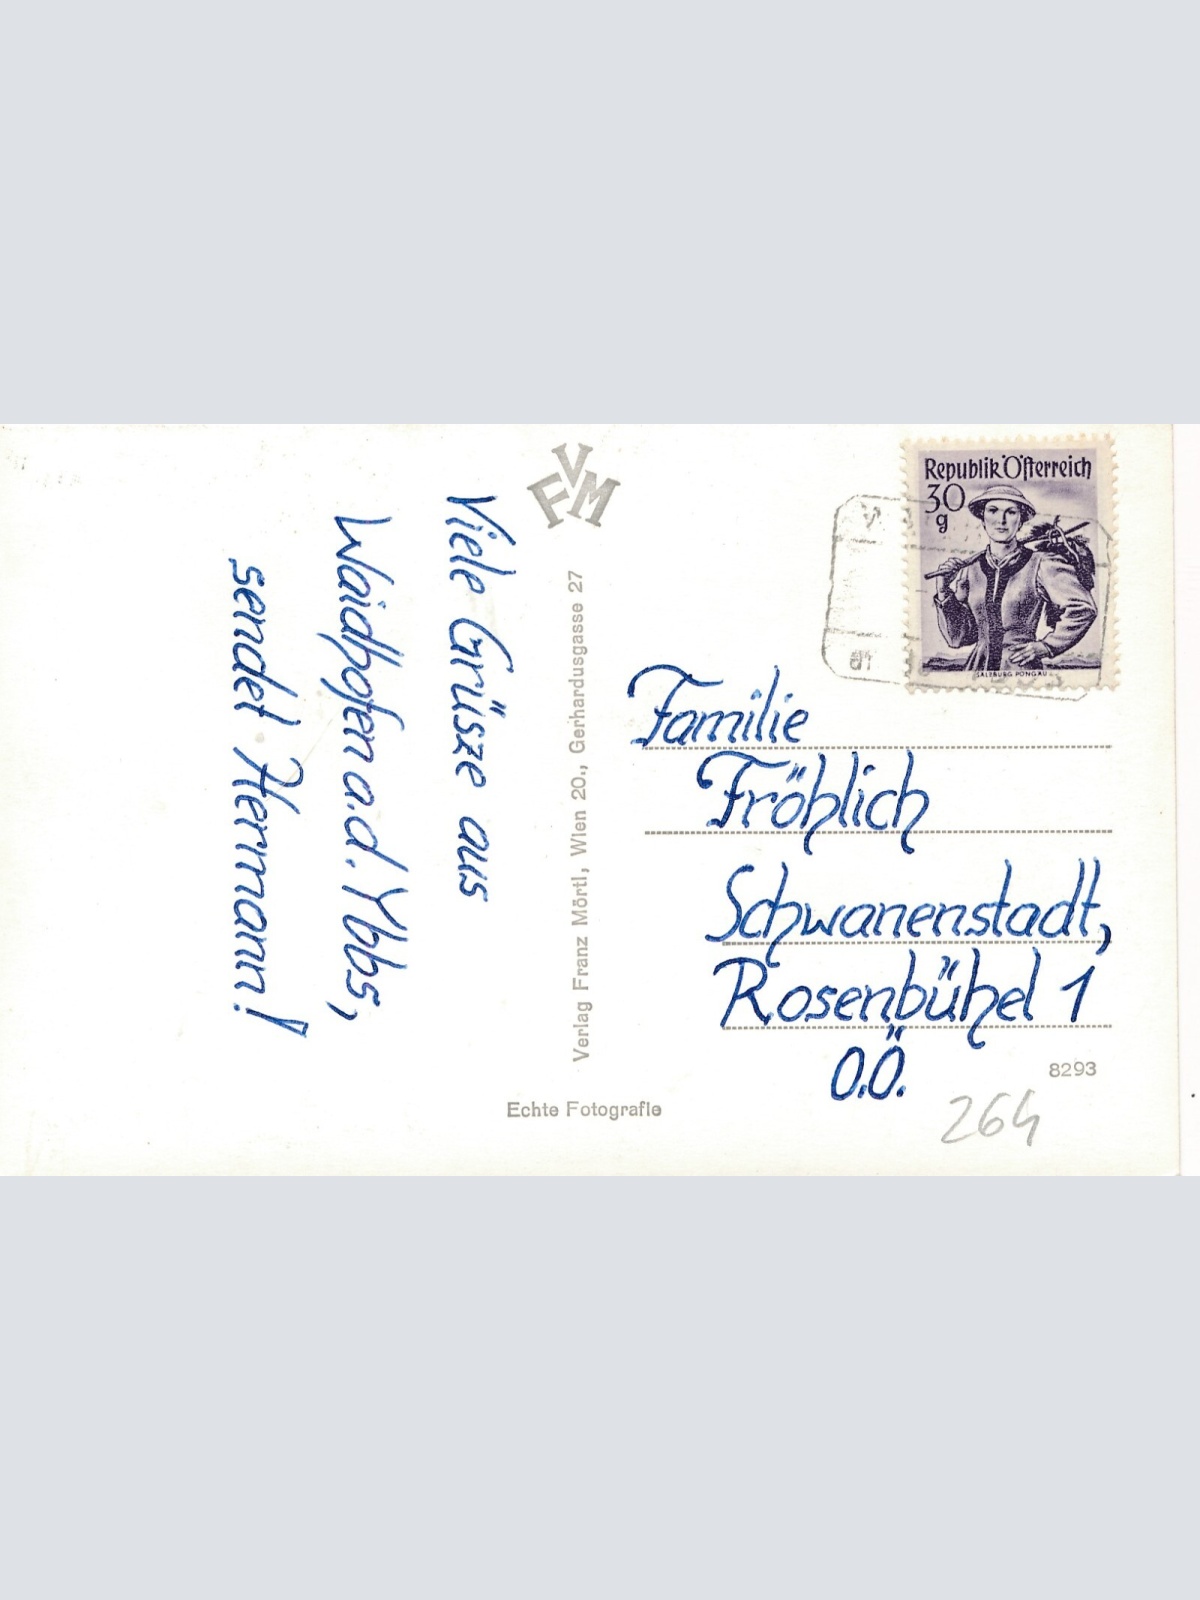 Viele Grüsze aus
Waidhofen a.d. Ybbs,
sendet Hermann!
FVM
Verlag Franz Mörtl, Wien 20., Gerhardusgasse 27
Echte Fotografie
Republik Österreich
30
g
SALZBURG PONGAU
Familie
Fröhlich
Schwanenstadt,
Rosenbühel 1
O.Ö.
8293
264